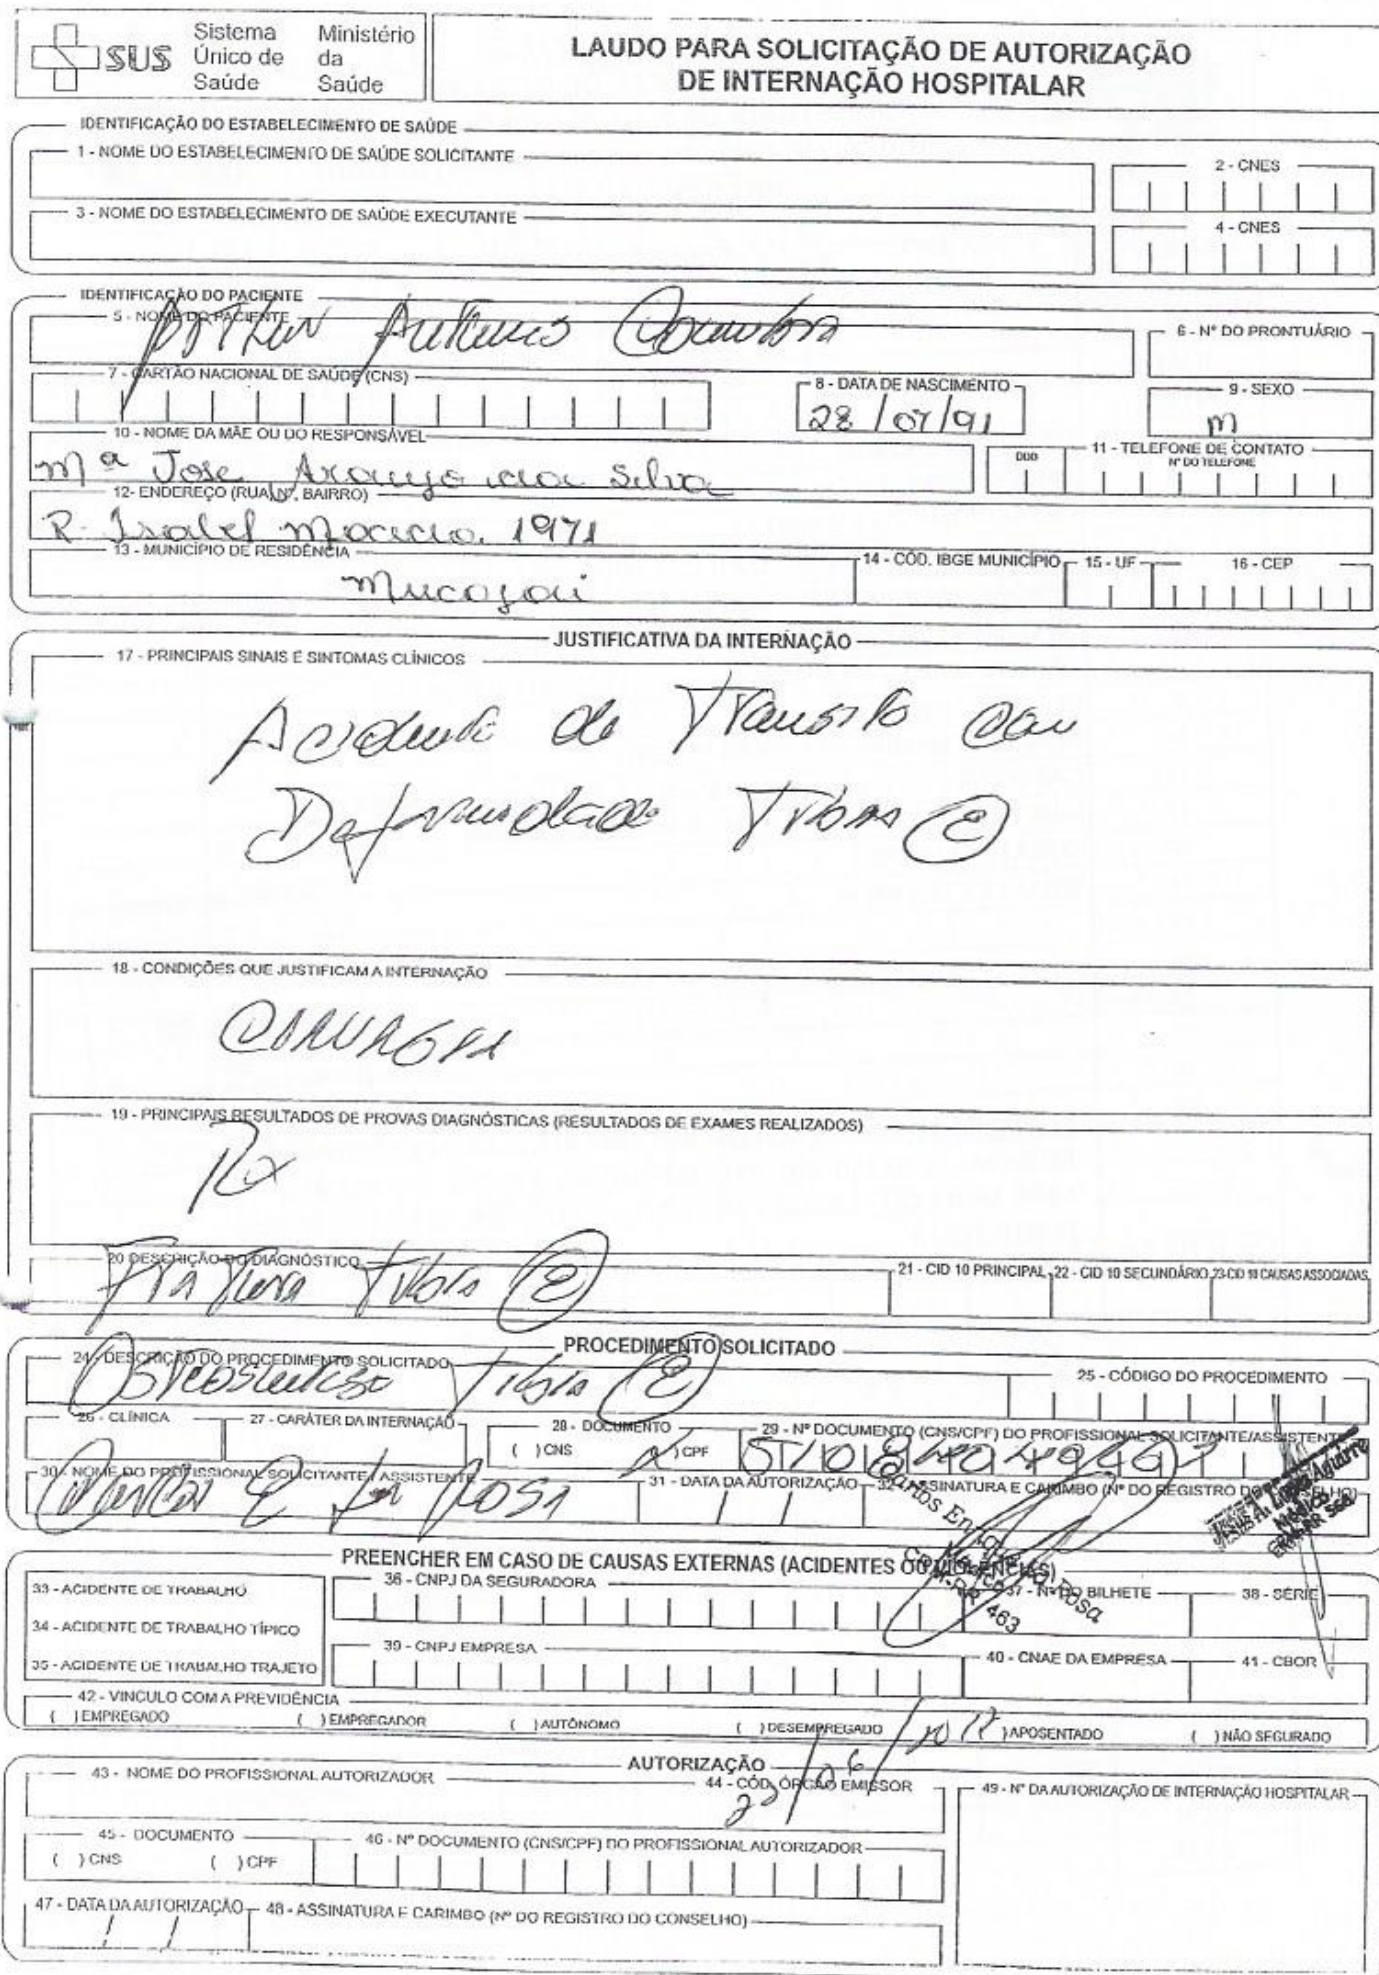 SUS Sistema Único de Saúde Ministério da Saúde
LAUDO PARA SOLICITAÇÃO DE AUTORIZAÇÃO
DE INTERNAÇÃO HOSPITALAR
IDENTIFICAÇÃO DO ESTABELECIMENTO DE SAÚDE
1 - NOME DO ESTABELECIMENTO DE SAÚDE SOLICITANTE
2 - CNES
3 - NOME DO ESTABELECIMENTO DE SAÚDE EXECUTANTE
4 - CNES
IDENTIFICAÇÃO DO PACIENTE
5 - NOME DO PACIENTE
6 - Nº DO PRONTUÁRIO
7 - CARTÃO NACIONAL DE SAÚDE (CNS)
8 - DATA DE NASCIMENTO
9 - SEXO
28/07/91
m
10 - NOME DA MÃE OU DO RESPONSÁVEL
11 - TELEFONE DE CONTATO
DDD
Nº DO TELEFONE
Mª Jose Araujo da Silva
12- ENDEREÇO (RUA, Nº, BAIRRO)
R. Isabel 1971
13 - MUNICÍPIO DE RESIDÊNCIA
14 - CÓD. IBGE MUNICÍPIO
15 - UF
16 - CEP
Mucajai
JUSTIFICATIVA DA INTERNAÇÃO
17 - PRINCIPAIS SINAIS E SINTOMAS CLÍNICOS
Acidente de Transito com
Deformidade Tibia (E)
18 - CONDIÇÕES QUE JUSTIFICAM A INTERNAÇÃO
CIRURGIA
19 - PRINCIPAIS RESULTADOS DE PROVAS DIAGNÓSTICAS (RESULTADOS DE EXAMES REALIZADOS)
Rx
20 DESCRIÇÃO DO DIAGNÓSTICO
21 - CID 10 PRINCIPAL
22 - CID 10 SECUNDÁRIO
23-CID 10 CAUSAS ASSOCIADAS
Fratura Tibia (E)
PROCEDIMENTO SOLICITADO
24 - DESCRIÇÃO DO PROCEDIMENTO SOLICITADO
25 - CÓDIGO DO PROCEDIMENTO
Tibia (E)
26 - CLÍNICA
27 - CARÁTER DA INTERNAÇÃO
28 - DOCUMENTO
29 - Nº DOCUMENTO (CNS/CPF) DO PROFISSIONAL SOLICITANTE/ASSISTENTE
( ) CNS
( ) CPF
30 - NOME DO PROFISSIONAL SOLICITANTE / ASSISTENTE
31 - DATA DA AUTORIZAÇÃO
32 - ASSINATURA E CARIMBO (Nº DO REGISTRO DO CONSELHO)
PREENCHER EM CASO DE CAUSAS EXTERNAS (ACIDENTES OU VIOLÊNCIAS)
33 - ACIDENTE DE TRABALHO
36 - CNPJ DA SEGURADORA
37 - Nº DO BILHETE
38 - SÉRIE
34 - ACIDENTE DE TRABALHO TÍPICO
39 - CNPJ EMPRESA
40 - CNAE DA EMPRESA
41 - CBOR
35 - ACIDENTE DE TRABALHO TRAJETO
42 - VINCULO COM A PREVIDÊNCIA
( ) EMPREGADO ( ) EMPREGADOR ( ) AUTÔNOMO ( ) DESEMPREGADO ( ) APOSENTADO ( ) NÃO SEGURADO
AUTORIZAÇÃO
43 - NOME DO PROFISSIONAL AUTORIZADOR
44 - CÓD. ÓRGÃO EMISSOR
49 - Nº DA AUTORIZAÇÃO DE INTERNAÇÃO HOSPITALAR
45 - DOCUMENTO
46 - Nº DOCUMENTO (CNS/CPF) DO PROFISSIONAL AUTORIZADOR
( ) CNS ( ) CPF
47 - DATA DA AUTORIZAÇÃO
48 - ASSINATURA E CARIMBO (Nº DO REGISTRO DO CONSELHO)